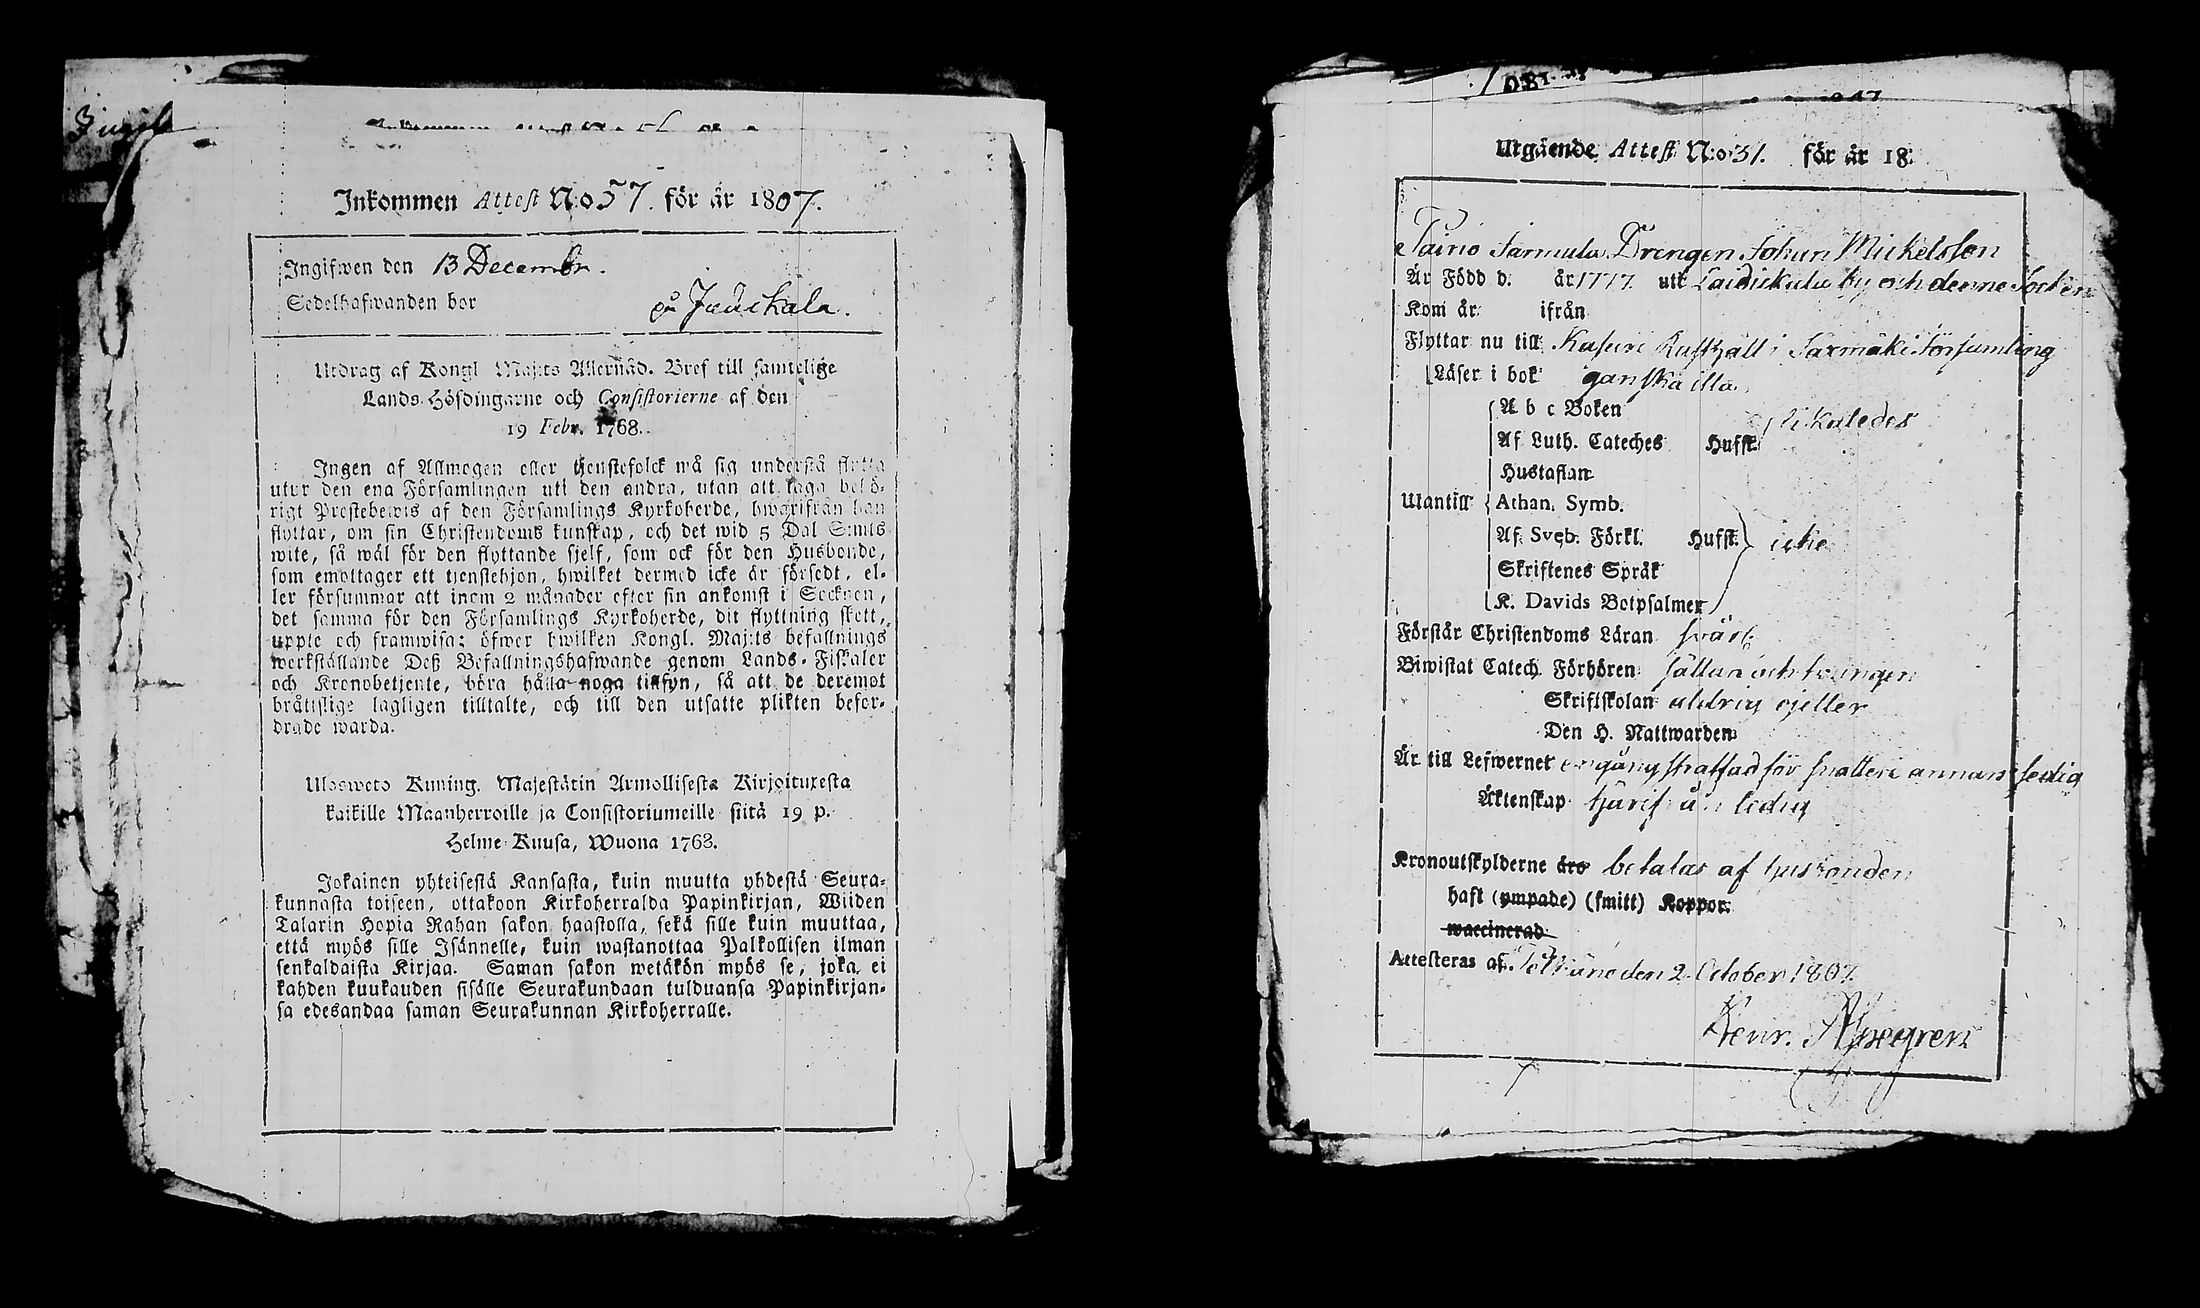 Inkommen Attest N:o 57. för år 1807.
Ingifwen den 13 Decembr.
Sedelhafwanden bor på Jutikkala.
Utdrag af Kongl Maj:ts Allernåd. Bref till samtelige
Lands-Höfdingarne och Consistorierne af den
19 Febr. 1768.
Ingen af Allmogen eller tjenstefolck må sig understå flytta
utur den ena Församlingen uti den andra, utan att taga behö-
rigt Prestebewis af den Församlings Kyrkoherde, hwarifrån han
flyttar, om sin Christendoms kunskap, och det wid 5 Dal S:mts
wite, så wäl för den flyttande sjelf, som ock för den Husbonde,
som emottager ett tjenstehjon, hwilket dermed icke är försedt, el-
ler försummar att inom 2 månader efter sin ankomst i Socknen,
det samma för den Församlings Kyrkoherde, dit flyttning skett,
uppte och framwisa: öfwer hwilken Kongl. Maj:ts befallnings
werkställande Deß Befallningshafwande genom Lands-Fiskaler
och Kronobetjente, böra hålla noga tillsyn, så att de deremot
bråttslige lagligen tilltalte, och till den utsatte plikten befor-
drade warda.
Ulosweto Kuning. Majestätin Armollisesta Kirjoituxesta
kaikille Maanherroille ja Consistoriumeille siitä 19 p.
Helme-Kuusa, Wuona 1768.
Jokainen yhteisestä Kansasta, kuin muutta yhdestä Seura-
kunnasta toiseen, ottakoon Kirkoherralda Papinkirjan, Wiiden
Talarin Hopia Rahan sakon haastolla, sekä sille kuin muuttaa,
että myös sille Isännelle, kuin wastanottaa Palkollisen ilman
senkaldaista Kirjaa. Saman sakon wetäkön myös se, joka ei
kahden kuukauden sisälle Seurakundaan tulduansa Papinkirjan-
sa edesandaa saman Seurakunnan Kirkoherralle.
Utgående Attest N:o 31. för år 18
Drengen Johan Mickelsson
Är Född d. år 1777. uti by och denne Socken
Kom år ifrån
Flyttar nu till Rusthåll i Saxmäki Församling
Läser i bok ganska illa
A b c Boken
Af Luth. Cateches Hufst.
Hustaflan
Utantill Athan. Symb.
Af Sveb. Förkl. Hufst. icke
Skriftenes Språk
K. Davids Botpsalmer
Förstår Christendoms Läran svårt
Biwistat Catech. Förhören sällan och tvungen
Skriftskolan aldrig heller
Den H. Nattwarden
Är till Lefwernet en gång straffad för snatteri annars sedig
Äktenskap härifrån ledig
Kronoutskylderne äro betalas af husbonden
haft (ympade) (smitt) Koppor.
waccinerad
Attesteras af den 2 October 1807.
Henr.